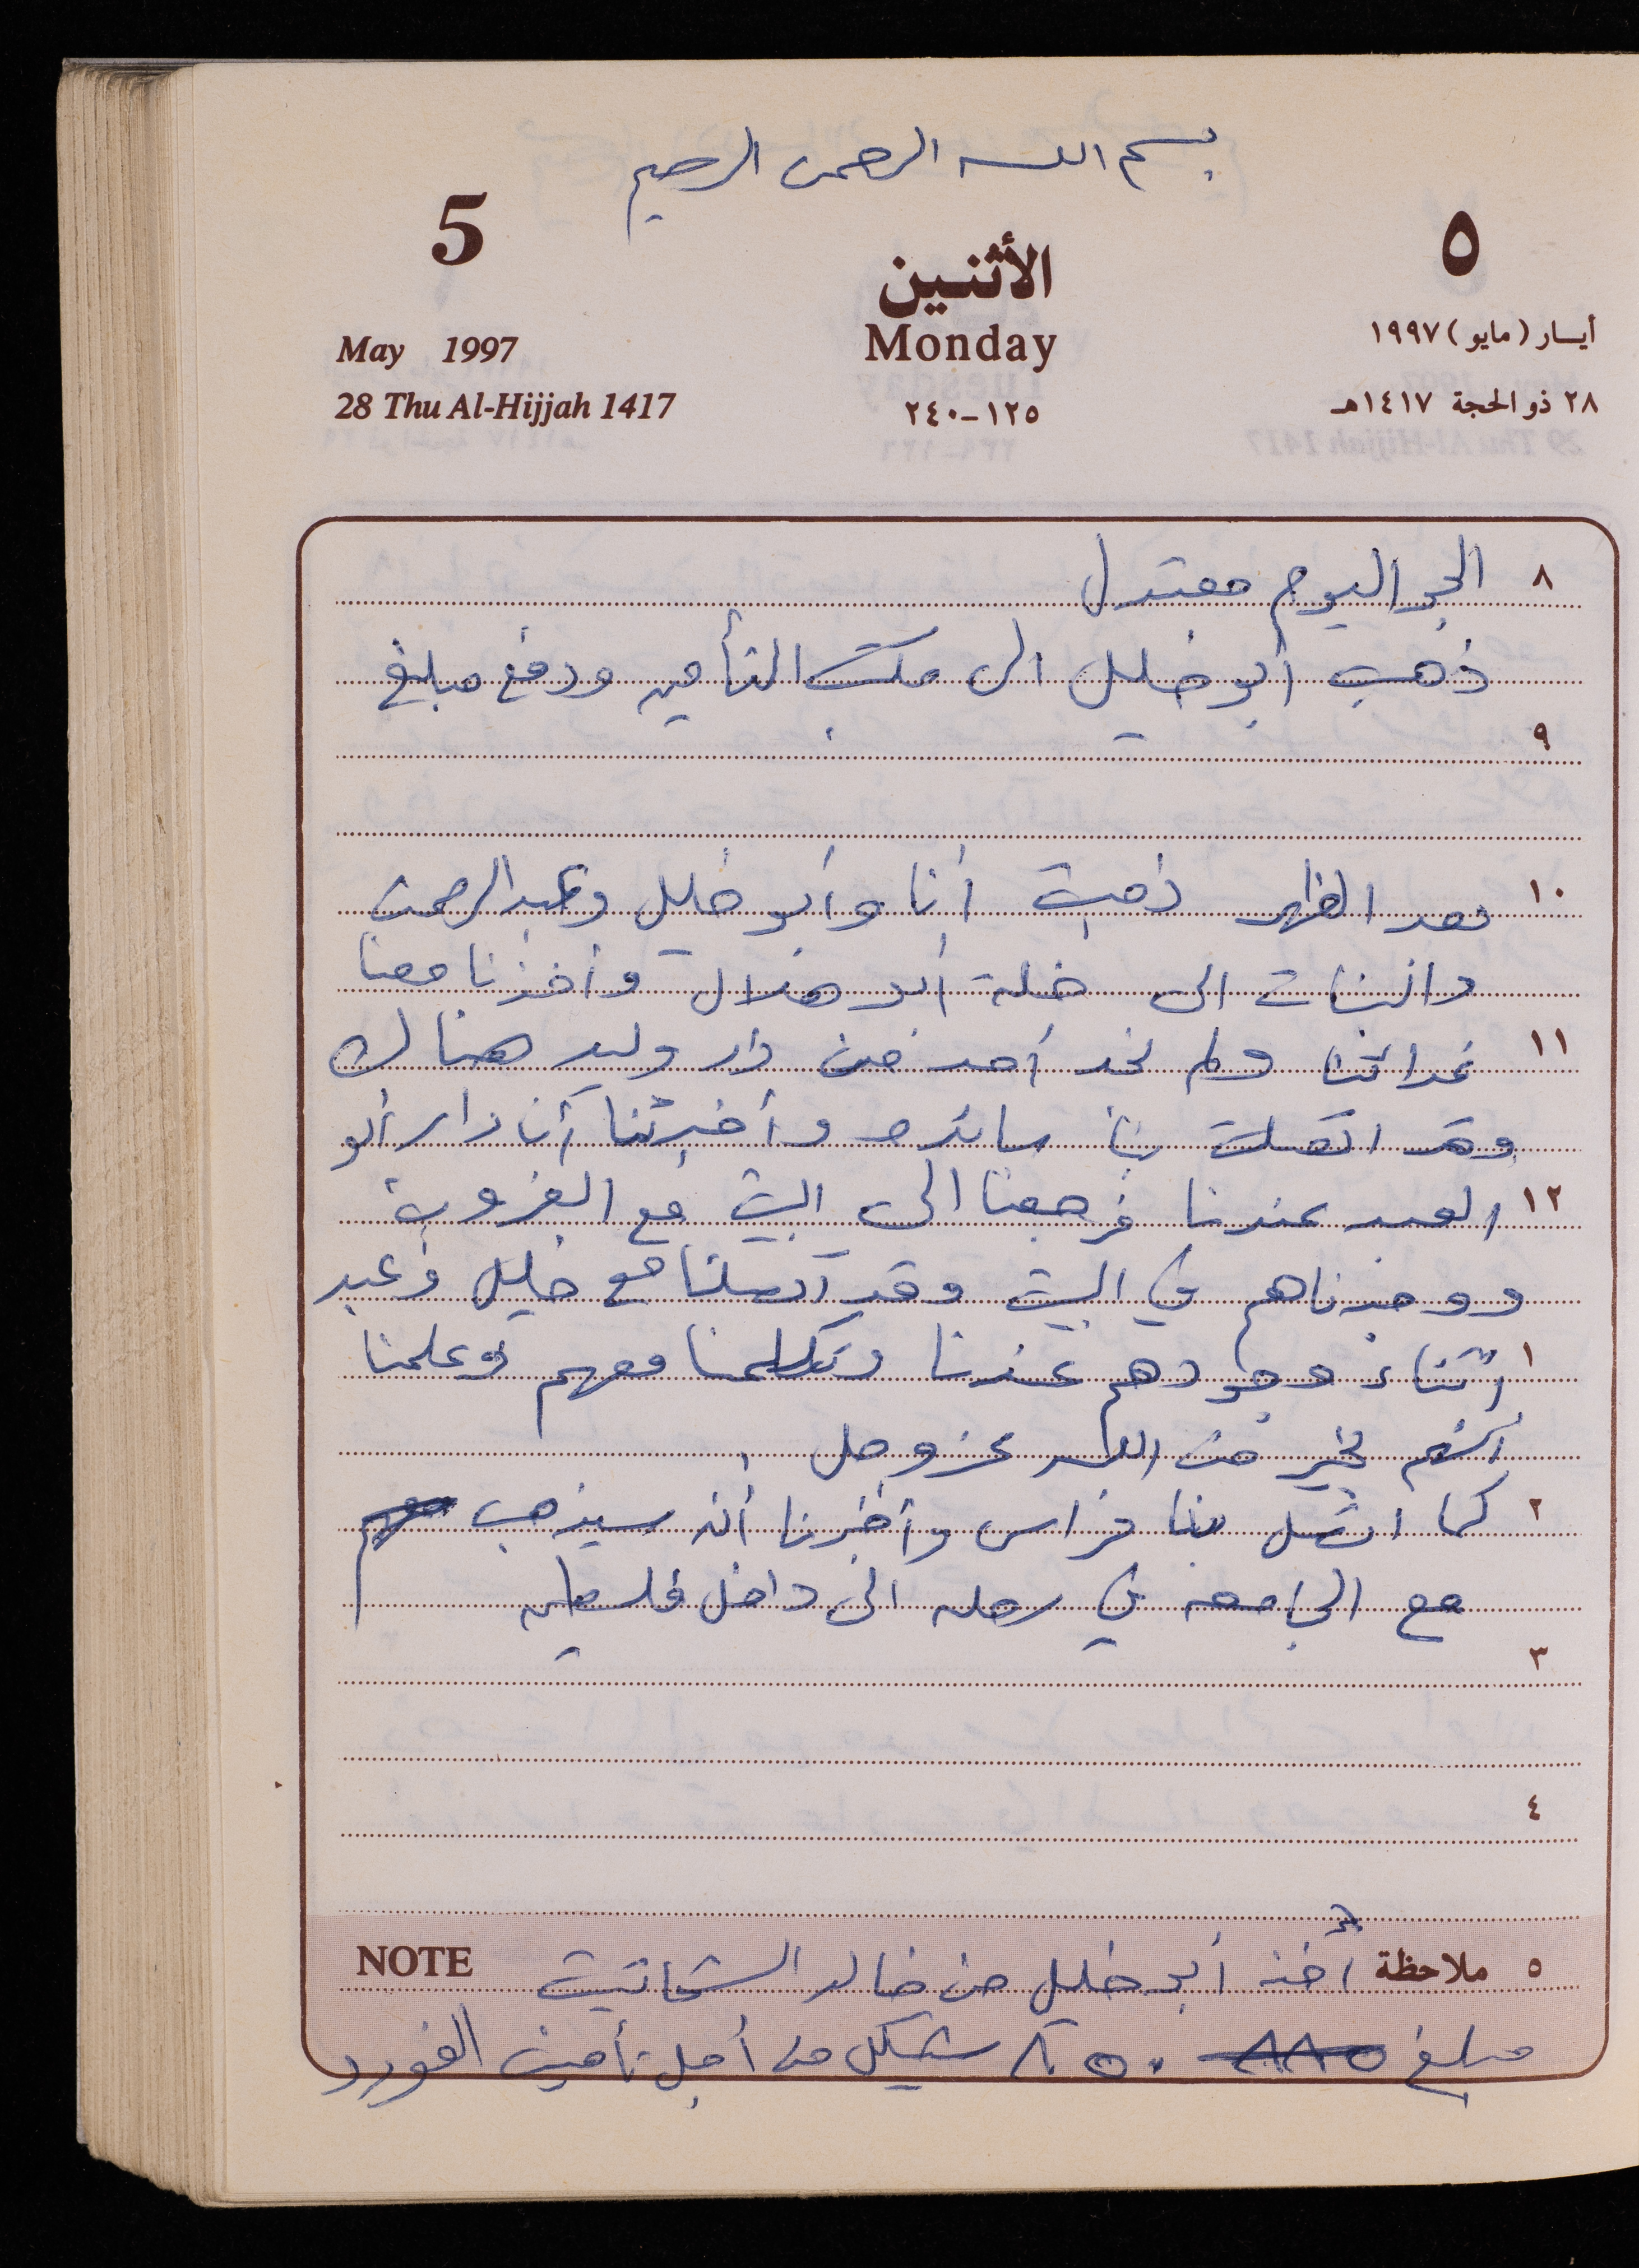 بسم الله الرحمن الرحيم
5
٥
الأثنين
Monday
May 1997
أيسار (مايو) ١٩٩٧
28 Thu Al-Hijjah 1417
١٢٥-٢٤٠
٢٨ ذو الحجة ١٤١٧هـ
٨ الجو اليوم معتدل
ذهب أبو خليل الى مكتب التأمين ودفع مبلغ
٩
١٠ بعد الظهر ذهبت أنا وأبو خليل وعبد الرحمن
والبنات الى خلة أبو هلال وأخذنا معنا
١١ غدائنا ولم نجد أحد من دار وليد هناك
وقد اتصلت بنا سائده وأخبرتنا أن دار أبو
١٢ العبد عندنا فرجعنا الى البيت مع الغروب
ووجدناهم في البيت وقد اتصلنا مع خليل وعبد
١ اثناء وجودهم عندنا وتكلمنا معهم وعلمنا
انهم بخير من الله عز وجل .
٢ كما اتصل بنا فراس وأخبرنا أنه سيذهب
مع الجامعه في رحله الى داخل فلسطين
٣
٤
٥ ملاحظة أخذ أبو خليل من خالد الشحاتيت NOTE
مبلغ ٨٥٠ شيكل من أجل تأمين الفورد